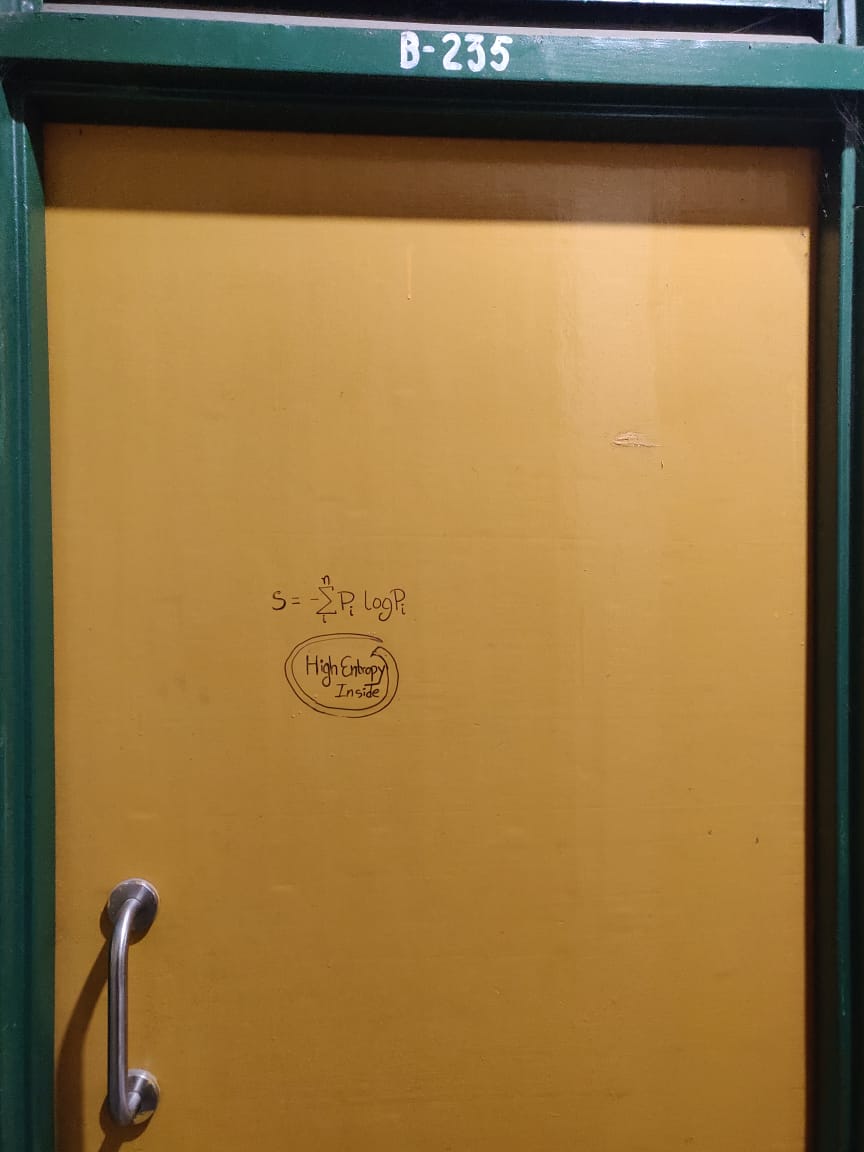 B-235
S = -∑ᵢⁿ Pᵢ log Pᵢ
High Entropy
Inside